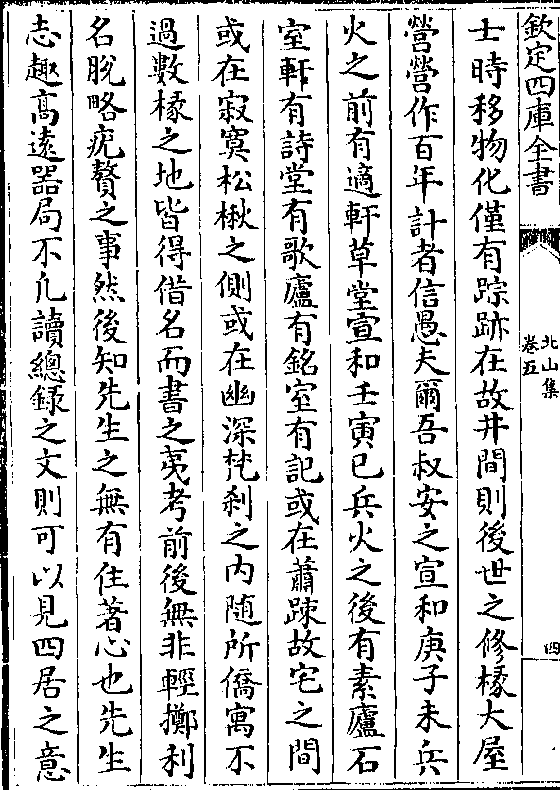 欽定四庫全書
北山集
卷五
四
士時移物化僅有踪跡在故井間則後世之修椽大屋
營營作百年計者信愚夫爾吾叔安之宣和庚子未兵
火之前有適軒草堂宣和壬寅已兵火之後有素廬石
室軒有詩堂有歌廬有銘室有記或在蕭踈故宅之間
或在寂寞松楸之側或在幽深梵刹之内随所僑寓不
過數椽之地皆得借名而書之夷考前後無非輕擲利
名脫略疣贅之事然後知先生之無有住著心也先生
志趣髙遠器局不凢讀總錄之文則可以見四居之意